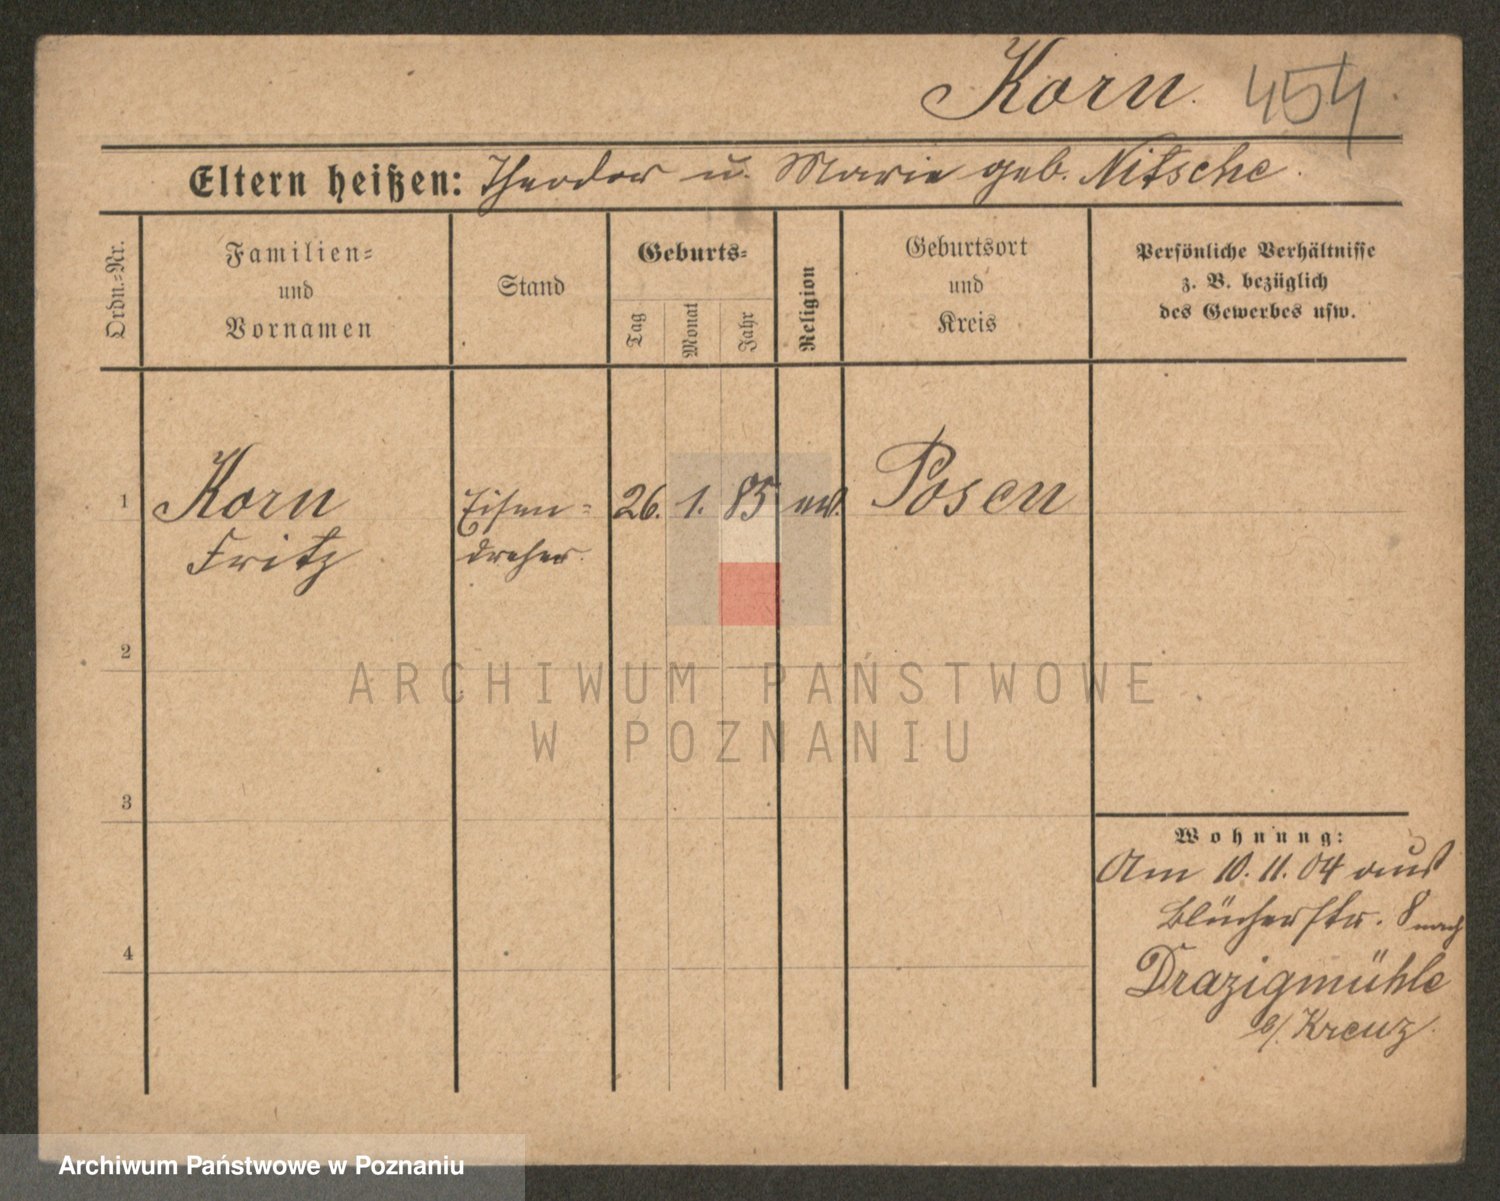 Korn. 454
Eltern heißen: Theodor u. Marie geb. Nitsche.
Ordn.-Nr.
Familien-
und
Vornamen
Stand
Geburts-
Tag
Monat
Jahr
Religion
Geburtsort
und
Kreis
Persönliche Verhältnisse
z. B. bezüglich
des Gewerbes usw.
1 Korn Eisen- 26. 1. 85 ev. Posen
Fritz dreher.
2
3
4
Wohnung:
Am 10. 11. 04 aus
Blücherstr. 8 nach
Drazigmühle
b/. Kreuz.
ARCHIWUM PAŃSTWOWE
W POZNANIU
Archiwum Państwowe w Poznaniu